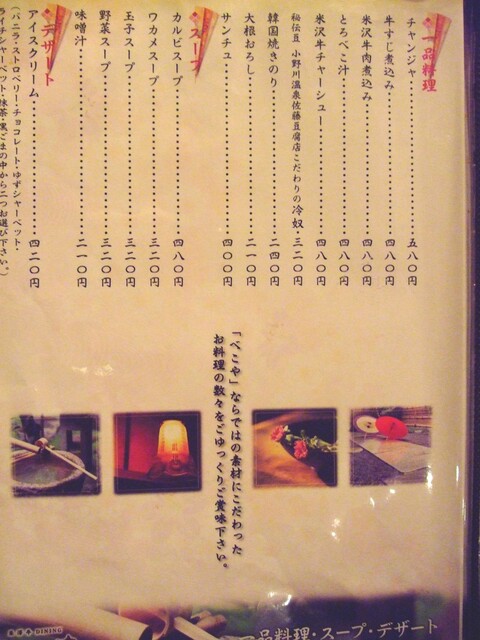 一品料理
チャンジャ………五八〇円
牛すじ煮込み………四八〇円
米沢牛肉煮込み………四八〇円
とろべこ汁………四八〇円
米沢牛チャーシュー………四八〇円
秘伝豆 小野川温泉佐藤豆腐店こだわりの冷奴…三二〇円
韓国焼きのり………二四〇円
大根おろし………二一〇円
サンチュ………四〇〇円
スープ
カルビスープ………四八〇円
ワカメスープ………三二〇円
玉子スープ………三二〇円
野菜スープ………三二〇円
味噌汁………二一〇円
デザート
アイスクリーム………四二〇円
(バニラ・ストロベリー・チョコレート・ゆずシャーベット・
ライチシャーベット・抹茶・黒ごまの中から二つお選び下さい。)
「べこや」ならではの素材にこだわった
お料理の数々をごゆっくりご賞味下さい。
米澤牛DINING
一品料理・スープ・デザート